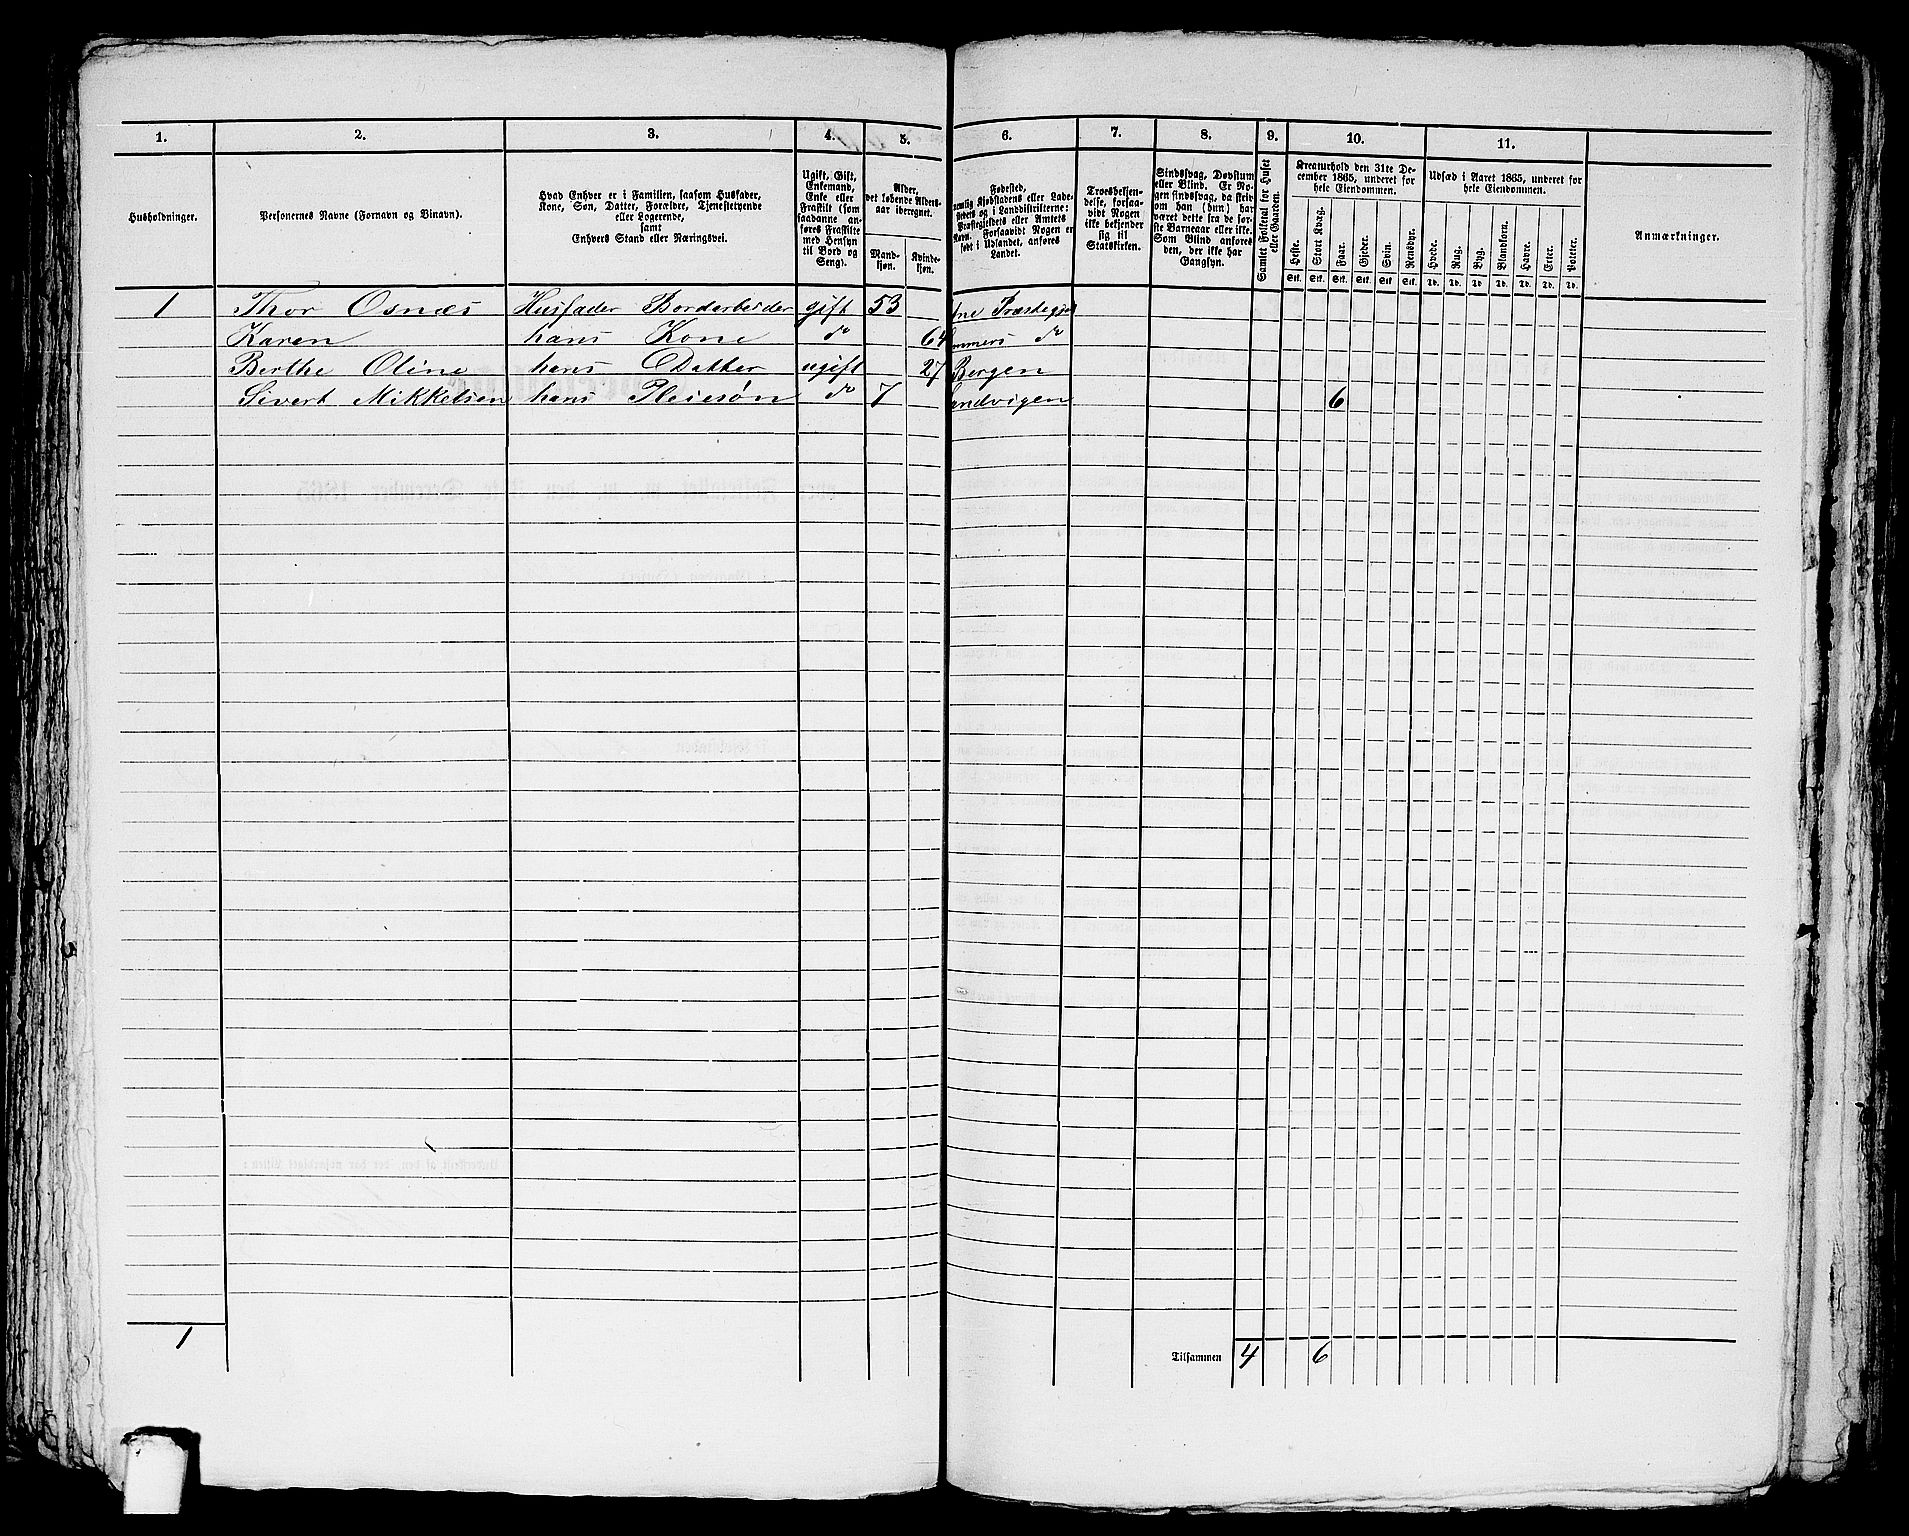 1. 2. 3. 4. 5. 6. 7. 8. 9. 10. 11.
Husholdninger.
Personernes Navne (Fornavn og Binavn).
Hvad Enhver er i Familien, saasom Husfader,
Kone, Søn, Datter, Forældre, Tjenestetyende
eller Logerende,
samt
Enhvers Stand eller Næringsvei.
Ugift, Gift,
Enkemand,
Enke eller
Fraskilt (som
saadanne an-
føres Fraskilte
med Hensyn
til Bord og
Seng).
Alder,
det løbende Alders-
aar iberegnet.
Mand-
kjøn.
Kvinde-
kjøn.
Fødested,
nemlig Kjøbstadens eller Lade-
stedets og i Landdistrikterne:
Præstegjeldets eller Amtets
Navn. Forsaavidt Nogen er
født i Udlandet, anføres
Landet.
Troesbekjen-
delse, forsaa-
vidt Nogen
ikke bekjender
sig til
Statskirken.
Sindssvag, Døvstum
eller Blind. Er No-
gen sindssvag, da skriv
om han (hun) har
været dette fra de før-
ste Barneaar eller ikke.
Som Blind anføres
den, der ikke har
Gangsyn.
Samlet Folketal for Huset
eller Gaarden.
Kreaturhold den 31te De-
cember 1865, underet for
hele Eiendommen.
Heste. Stort Kvæg. Faar. Gjeder. Svin. Rensdyr.
Stk. Stk. Stk. Stk. Stk. Stk.
Udsæd i Aaret 1865, underet for
hele Eiendommen.
Hvede. Rug. Byg. Blandkorn. Havre. Erter. Poteter.
Td. Td. Td. Td. Td. Td. Td.
Anmærkninger.
1 Thor Osnæs Husfader Bordarbeider gift 53 Præstegjel
Karen hans Kone do 64 do
Berthe Oline hans Datter ugift 27 Bergen
Sivert Mikkelsen hans Pleiesøn do 7 Sandvigen 6
1
Tilsammen 4 6